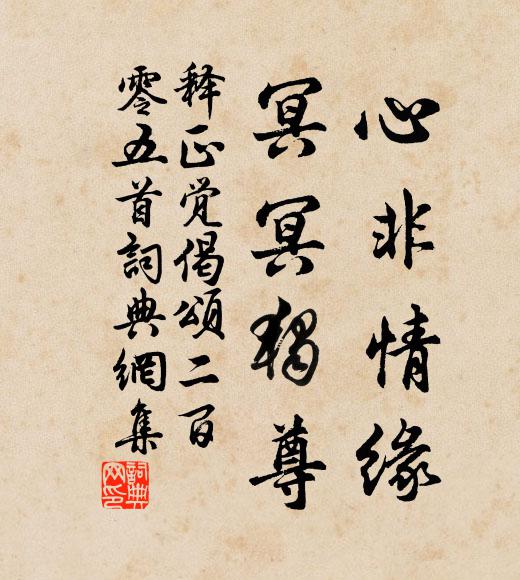 心非情缘
冥冥独尊
释正觉偈頌二百
零五首詞典網集
詞典
网印